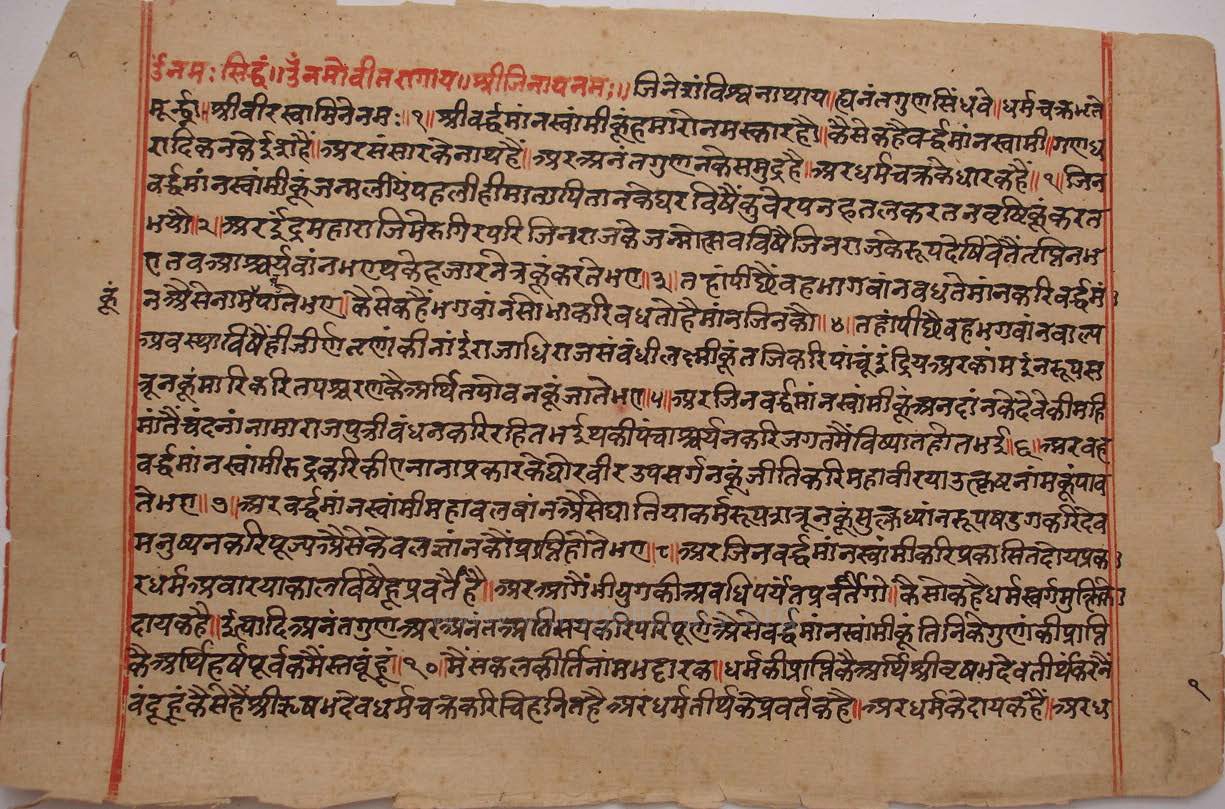 र्उनमः सिद्धं॥ र्उंनमोवीतरागाय॥ श्रीजिनायनमः॥ जिनेशंविश्वनाथाय॥ह्यनंतगुणसिंधवे॥धर्मचक्रभृते
मूर्द्ध्ना॥श्रीवीरस्वामिनेनमः॥१॥श्रीवर्द्धमांनस्वांमीकूंहमारोनमस्कारहौ॥कैसेकहैवर्द्धमांनस्वामी॥गणध
रादिकनकेईशहैं॥अरसंसारकेनाथहैं॥अरअनंतगुणनकेसमुद्रहै॥अरधर्मचक्रकेधारकहैं॥१॥जिन
वर्द्धमांनस्वांमीकूंजन्मलीयेंपहलीहीमातापितानकेघरविषैंकुवेरपनहतलकरतनवृष्टिकूंकरत
भयौ॥२॥अरईंद्रमहाराजिमेरुगिरपरिजिनराजकेजन्मोत्सवविषैजिनराजकेरूपदेषिवेतैंतृप्तिनभ
एतवआश्चर्यवांनभएथकेहजारनेत्रकूंकरतेभए॥३॥तहांपीछैंवहभागवांनवधतेमांनकरिवर्द्धमां
नअैसेनामैंपातैभए॥कैसेकहैंभगवांनसोभाकरिवधतोहैमांनजिनकौ॥४॥तहांपीछैवहभगवांनवाल्य
कूं
अवस्थाविषैंहीजीर्णतृणांकीनांईराजाधिराजसंवंधीलक्ष्मीकूंतजिकरिपांचूंइंद्रियअरकांमईंनरूपस
त्रूनकूंमारिकरितपश्चरणकैअर्थितपोवनकूंजातेभए॥५॥अरजिनवर्द्धमांनस्वांमीकूंअनदांनकेदेवेकीमहि
मांतैंचंदनांनामाराजपुत्रीवंधनकरिरहितभईथकीपंचाश्चर्यनकरिजगतमैंविष्यातहोतभई॥६॥अरवह
वर्द्धमांनस्वांमीरुद्रकरिकीएनानाप्रकारकेघोरवीरउपसर्गनकूंजीतिकरिमहावीरयाउत्कृष्टनांमकूंपाव
तेभए॥७॥अरवर्द्धमांनस्वांमीमहावलवांनअैसेघातियाकर्मरूपशत्रूनकूंसुक्लध्यांनरूपषडगकरिदेव
मनुष्यनकरिपूज्यअैसेकेवलज्ञांनकौंप्राप्तिहोतेभए॥८॥अरजिनवर्द्धमांनस्वांमीकरिप्रकासितदोयप्रका
रधर्मअवारयाकालविषैहूप्रवर्तैहै॥अरआगैंभीयुगकीअवधिपर्यंतप्रवर्तैगो॥कैसोकहैधर्मस्वर्गमुक्तिको
दायकहै॥ईत्यादिअनंतगुणअरअनंतअतिसयकरिपरिपूर्णअैसेवर्द्धमांनस्वांमीकूंतिनिकेगुणांकीप्राप्ति
कैअर्थिहर्षपूर्वकमैंस्तवूंहूं॥१०॥मैंसकलकीर्तिनांमभट्टारक॥धर्मकीप्राप्तिकैअर्थिश्रीवृषभदेवतीर्थंकरनैं
वंदूहूंकैसेहैंश्रीऋषभदेवधर्मचक्रकरिचिहनितहैअरधर्मतीर्थकेप्रवर्तकहै॥अरधर्मकेदायकहैं॥अरध
१